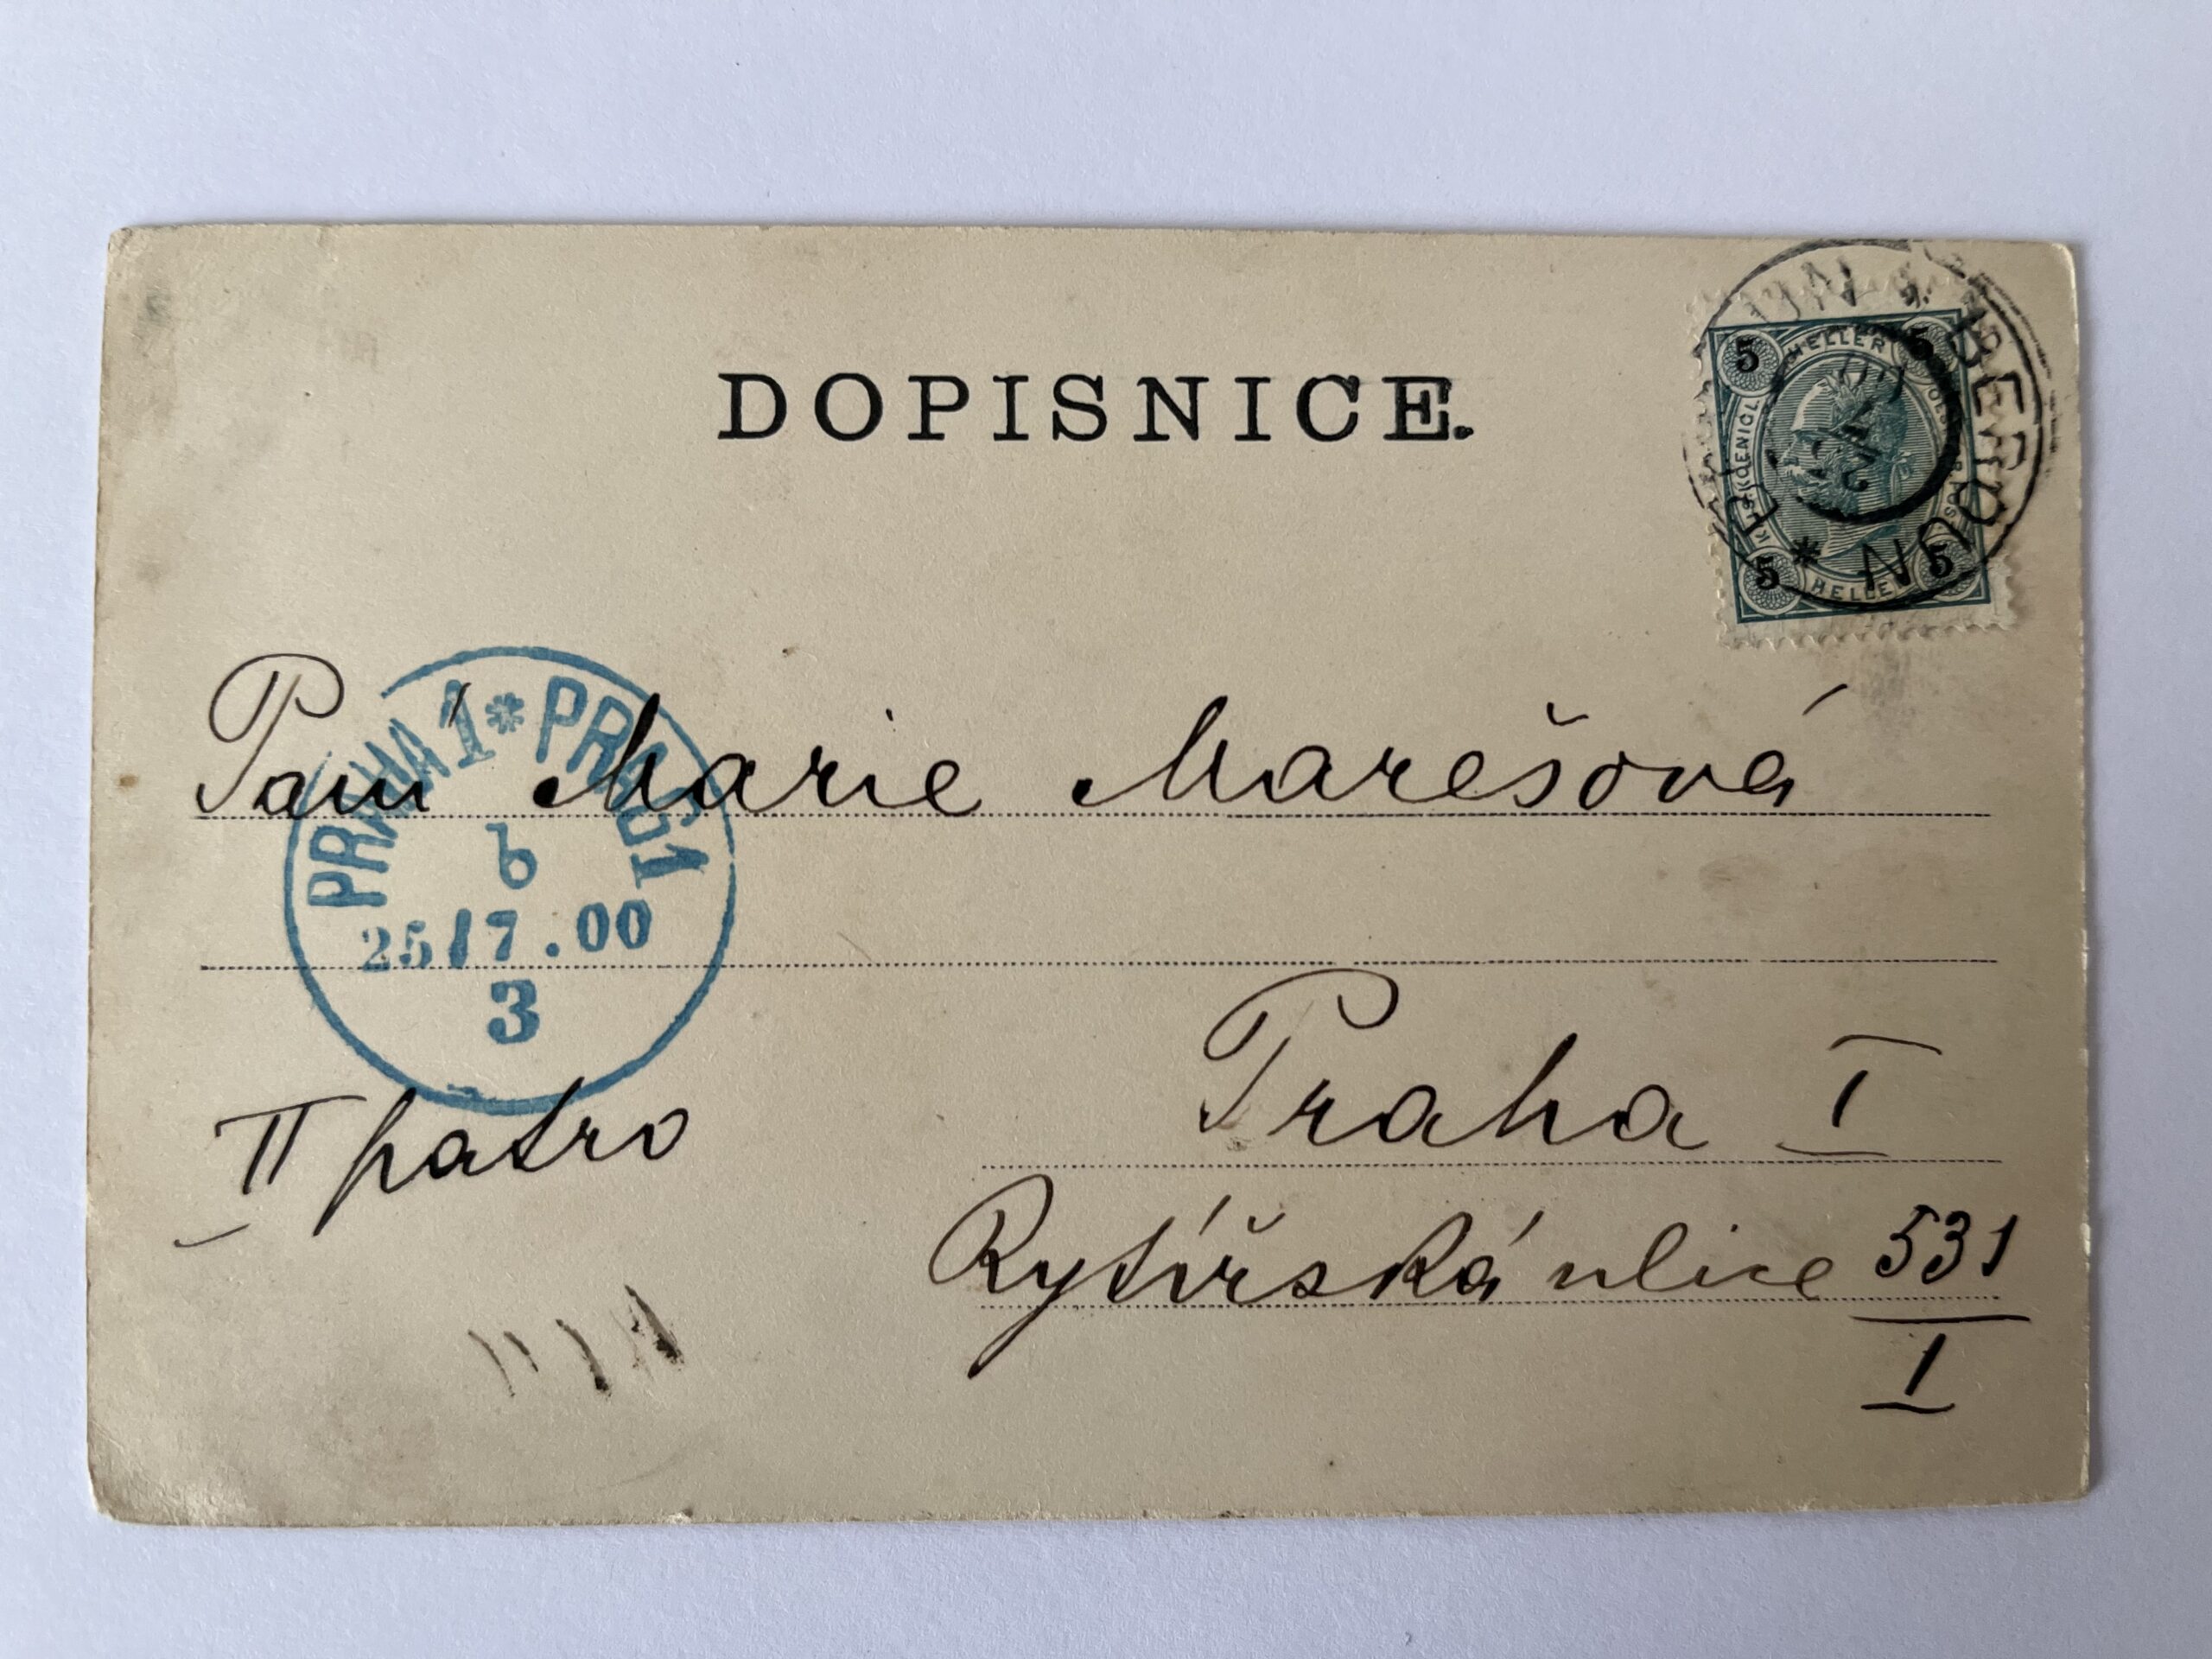 DOPISNICE.
5 HELLER 5
BEROUN *
5 HELLER 5
PRAHA 1 * PRAG 1
b
25/7.00
3
Paní Marie Marešová
Praha I
II patro
Rytířská ulice 531
I